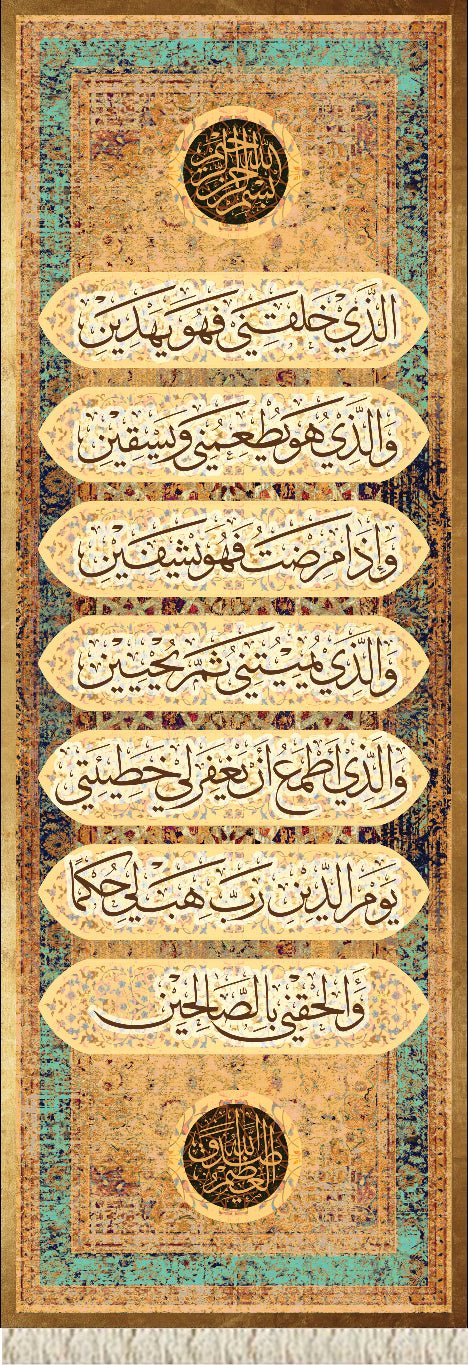 بسم الله الرحمن الرحيم
الَّذِي خَلَقَنِي فَهُوَ يَهْدِينِ
وَالَّذِي هُوَ يُطْعِمُنِي وَيَسْقِينِ
وَإِذَا مَرِضْتُ فَهُوَ يَشْفِينِ
وَالَّذِي يُمِيتُنِي ثُمَّ يُحْيِينِ
وَالَّذِي أَطْمَعُ أَنْ يَغْفِرَ لِي خَطِيئَتِي
يَوْمَ الدِّينِ رَبِّ هَبْ لِي حُكْمًا
وَأَلْحِقْنِي بِالصَّالِحِينَ
صدق الله العظيم